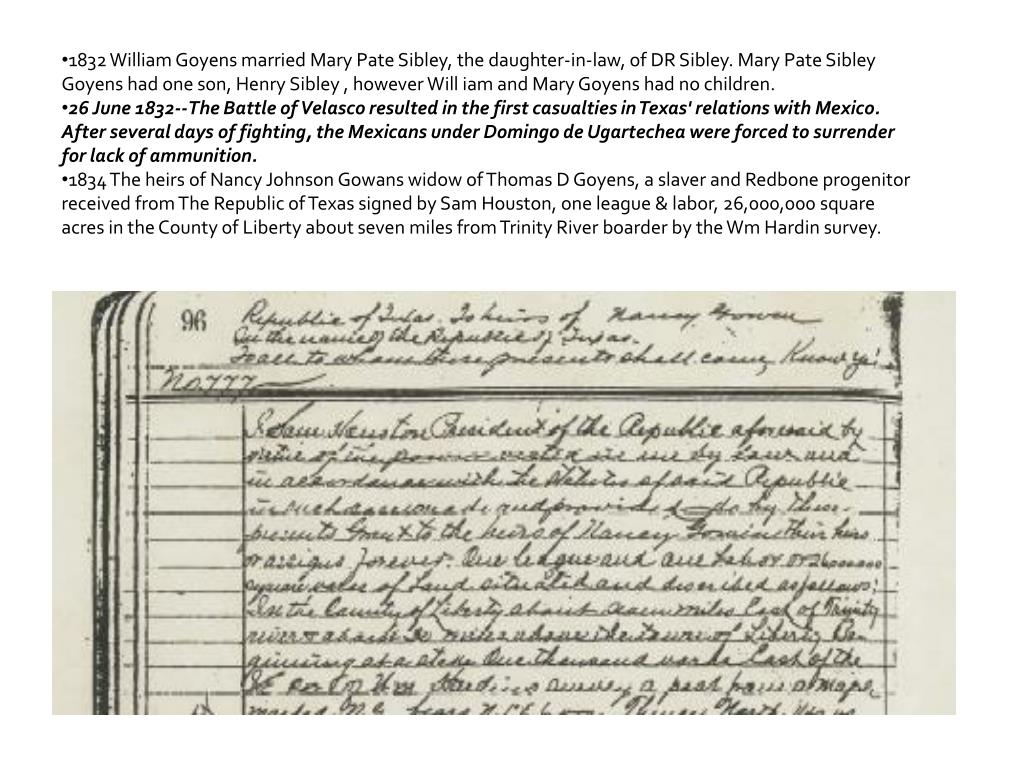 •1832 William Goyens married Mary Pate Sibley, the daughter-in-law, of DR Sibley. Mary Pate Sibley
Goyens had one son, Henry Sibley , however Will iam and Mary Goyens had no children.
•26 June 1832--The Battle of Velasco resulted in the first casualties in Texas' relations with Mexico.
After several days of fighting, the Mexicans under Domingo de Ugartechea were forced to surrender
for lack of ammunition.
•1834 The heirs of Nancy Johnson Gowans widow of Thomas D Goyens, a slaver and Redbone progenitor
received from The Republic of Texas signed by Sam Houston, one league & labor, 26,000,000 square
acres in the County of Liberty about seven miles from Trinity River boarder by the Wm Hardin survey.
96
Republic of Texas. To heirs of Nancy Gowen
In the name of the Republic of Texas.
To all to whom these presents shall come, Know ye!
No. 777
I Sam Houston President of the Republic aforesaid by
virtue of the power vested in me by Law and
in accordance with the Statutes of said Republic
in such case made and provided do by these
presents Grant to the heirs of Nancy their heirs
or assigns forever. One league and one Labor or 26000000
square varas of Land situated and described as follows:
In the County of Liberty about miles East of Trinity
river & about miles above the town of Liberty Be
ginning at a stake One thousand varas East of the
Wm survey, a post from